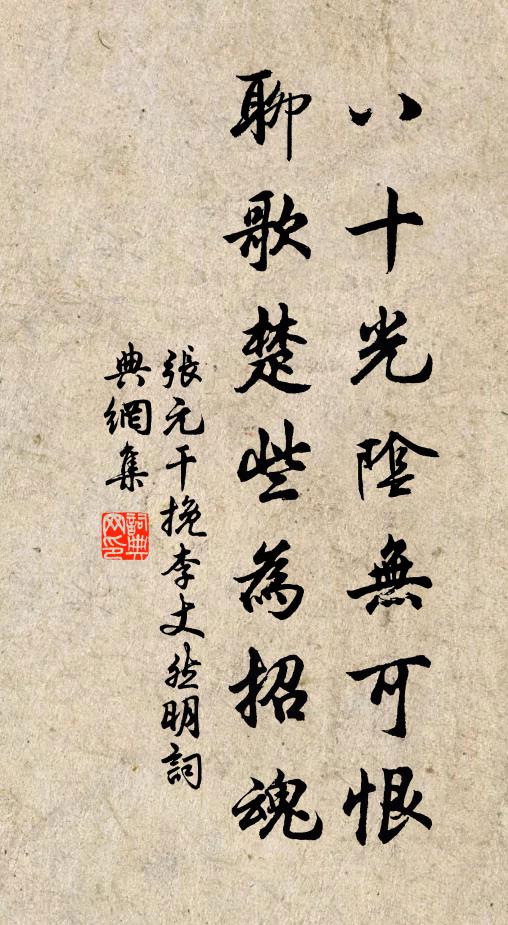 八十光陰無可恨
聊歌楚些為招魂
張元干挽李丈然明詞
典網集
詞典网印